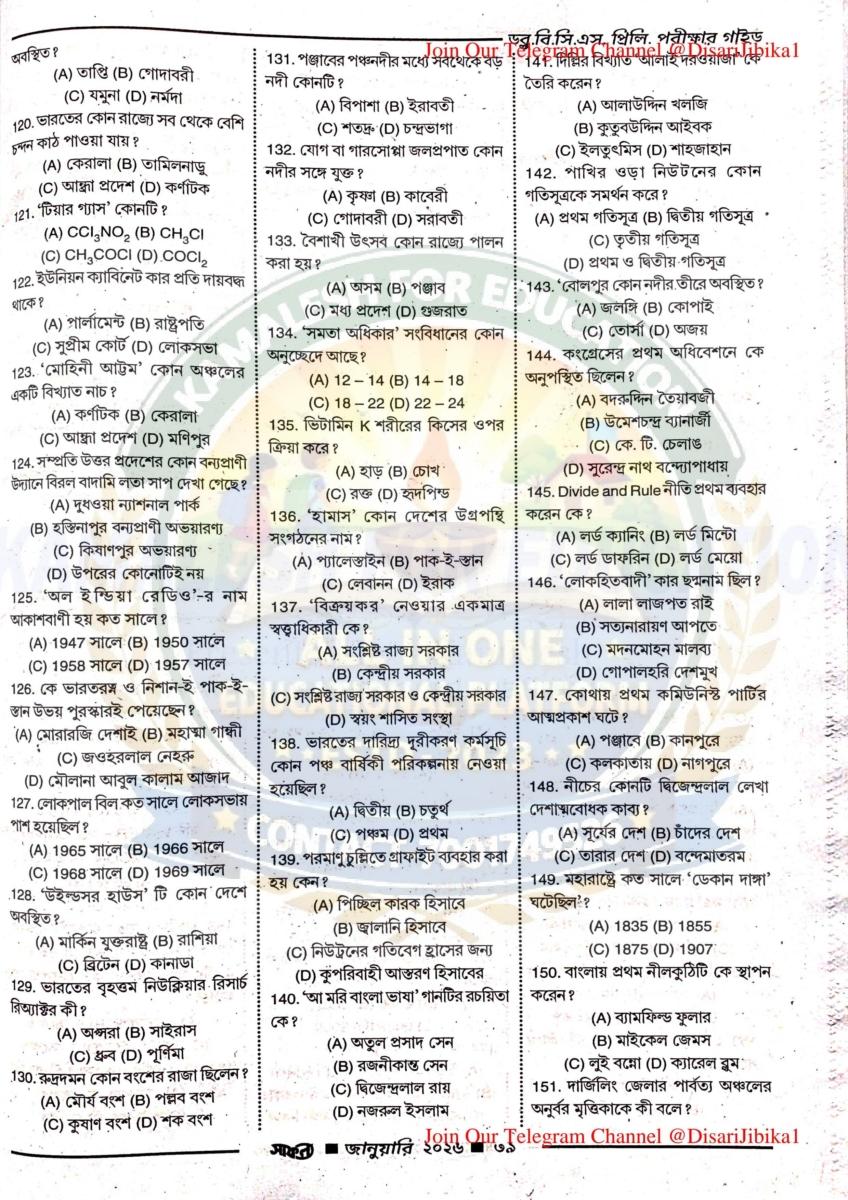 ডব্লু.বি.সি.এস. প্রিলি. পরীক্ষার গাইড
Join Our Telegram Channel @DisariJibika1
অবস্থিত?
(A) তাপ্তি (B) গোদাবরী
(C) যমুনা (D) নর্মদা
120. ভারতের কোন রাজ্যে সব থেকে বেশি
চন্দন কাঠ পাওয়া যায়?
(A) কেরালা (B) তামিলনাড়ু
(C) আন্ধ্রা প্রদেশ (D) কর্ণাটক
121. 'টিয়ার গ্যাস' কোনটি?
(A) CCl₃NO₂ (B) CH₃Cl
(C) CH₃COCl (D) COCl₂
122. ইউনিয়ন ক্যাবিনেট কার প্রতি দায়বদ্ধ
থাকে?
(A) পার্লামেন্ট (B) রাষ্ট্রপতি
(C) সুপ্রীম কোর্ট (D) লোকসভা
123. 'মোহিনী আট্টম' কোন অঞ্চলের
একটি বিখ্যাত নাচ?
(A) কর্ণাটক (B) কেরালা
(C) আন্ধ্রা প্রদেশ (D) মণিপুর
124. সম্প্রতি উত্তর প্রদেশের কোন বন্যপ্রাণী
উদ্যানে বিরল বাদামি লতা সাপ দেখা গেছে?
(A) দুধওয়া ন্যাশনাল পার্ক
(B) হস্তিনাপুর বন্যপ্রাণী অভয়ারণ্য
(C) কিষাণপুর অভয়ারণ্য
(D) উপরের কোনোটিই নয়
125. 'অল ইন্ডিয়া রেডিও'-র নাম
আকাশবাণী হয় কত সালে?
(A) 1947 সালে (B) 1950 সালে
(C) 1958 সালে (D) 1957 সালে
126. কে ভারতরত্ন ও নিশান-ই পাক-ই-
স্তান উভয় পুরস্কারই পেয়েছেন?
(A) মোরারজি দেশাই (B) মহাত্মা গান্ধী
(C) জওহরলাল নেহরু
(D) মৌলানা আবুল কালাম আজাদ
127. লোকপাল বিল কত সালে লোকসভায়
পাশ হয়েছিল?
(A) 1965 সালে (B) 1966 সালে
(C) 1968 সালে (D) 1969 সালে
128. 'উইন্ডসর হাউস' টি কোন দেশে
অবস্থিত?
(A) মার্কিন যুক্তরাষ্ট্র (B) রাশিয়া
(C) ব্রিটেন (D) কানাডা
129. ভারতের বৃহত্তম নিউক্লিয়ার রিসার্চ
রিঅ্যাক্টর কী?
(A) অপ্সরা (B) সাইরাস
(C) ধ্রুব (D) পূর্ণিমা
130. রুদ্রদমন কোন বংশের রাজা ছিলেন?
(A) মৌর্য বংশ (B) পল্লব বংশ
(C) কুষাণ বংশ (D) শক বংশ
131. পঞ্জাবের পঞ্চনদীর মধ্যে সবথেকে বড়
নদী কোনটি?
(A) বিপাশা (B) ইরাবতী
(C) শতদ্রু (D) চন্দ্রভাগা
132. যোগ বা গারসোপ্পা জলপ্রপাত কোন
নদীর সঙ্গে যুক্ত?
(A) কৃষ্ণা (B) কাবেরী
(C) গোদাবরী (D) সরাবতী
133. বৈশাখী উৎসব কোন রাজ্যে পালন
করা হয়?
(A) অসম (B) পঞ্জাব
(C) মধ্য প্রদেশ (D) গুজরাত
134. 'সমতা অধিকার' সংবিধানের কোন
অনুচ্ছেদে আছে?
(A) 12 – 14 (B) 14 – 18
(C) 18 – 22 (D) 22 – 24
135. ভিটামিন K শরীরের কিসের ওপর
ক্রিয়া করে?
(A) হাড় (B) চোখ
(C) রক্ত (D) হৃদপিন্ড
136. 'হামাস' কোন দেশের উগ্রপন্থি
সংগঠনের নাম?
(A) প্যালেস্তাইন (B) পাক-ই-স্তান
(C) লেবানন (D) ইরাক
137. 'বিক্রয়কর' নেওয়ার একমাত্র
স্বত্ত্বাধিকারী কে?
(A) সংশ্লিষ্ট রাজ্য সরকার
(B) কেন্দ্রীয় সরকার
(C) সংশ্লিষ্ট রাজ্য সরকার ও কেন্দ্রীয় সরকার
(D) স্বয়ং শাসিত সংস্থা
138. ভারতের দারিদ্র্য দূরীকরণ কর্মসূচি
কোন পঞ্চ বার্ষিকী পরিকল্পনায় নেওয়া
হয়েছিল?
(A) দ্বিতীয় (B) চতুর্থ
(C) পঞ্চম (D) প্রথম
139. পরমাণু চুল্লিতে গ্রাফাইট ব্যবহার করা
হয় কেন?
(A) পিচ্ছিল কারক হিসাবে
(B) জ্বালানি হিসাবে
(C) নিউট্রনের গতিবেগ হ্রাসের জন্য
(D) কুপরিবাহী আস্তরণ হিসাবের
140. 'আ মরি বাংলা ভাষা' গানটির রচয়িতা
কে?
(A) অতুল প্রসাদ সেন
(B) রজনীকান্ত সেন
(C) দ্বিজেন্দ্রলাল রায়
(D) নজরুল ইসলাম
141. দিল্লির বিখ্যাত 'আলাই দরওয়াজা' কে
তৈরি করেন?
(A) আলাউদ্দিন খলজি
(B) কুতুবউদ্দিন আইবক
(C) ইলতুৎমিস (D) শাহজাহান
142. পাখির ওড়া নিউটনের কোন
গতিসূত্রকে সমর্থন করে?
(A) প্রথম গতিসূত্র (B) দ্বিতীয় গতিসূত্র
(C) তৃতীয় গতিসূত্র
(D) প্রথম ও দ্বিতীয় গতিসূত্র
143. 'বোলপুর কোন নদীর তীরে অবস্থিত?
(A) জলঙ্গি (B) কোপাই
(C) তোর্সা (D) অজয়
144. কংগ্রেসের প্রথম অধিবেশনে কে
অনুপস্থিত ছিলেন?
(A) বদরুদ্দিন তৈয়াবজী
(B) উমেশচন্দ্র ব্যানার্জী
(C) কে. টি. চেলাঙ
(D) সুরেন্দ্র নাথ বন্দ্যোপাধ্যায়
145. Divide and Rule নীতি প্রথম ব্যবহার
করেন কে?
(A) লর্ড ক্যানিং (B) লর্ড মিন্টো
(C) লর্ড ডাফরিন (D) লর্ড মেয়ো
146. 'লোকহিতবাদী' কার ছদ্মনাম ছিল?
(A) লালা লাজপত রাই
(B) সত্যনারায়ণ আপতে
(C) মদনমোহন মালব্য
(D) গোপালহরি দেশমুখ
147. কোথায় প্রথম কমিউনিস্ট পার্টির
আত্মপ্রকাশ ঘটে?
(A) পঞ্জাবে (B) কানপুরে
(C) কলকাতায় (D) নাগপুরে
148. নীচের কোনটি দ্বিজেন্দ্রলাল লেখা
দেশাত্মবোধক কাব্য?
(A) সূর্যের দেশ (B) চাঁদের দেশ
(C) তারার দেশ (D) বন্দেমাতরম
149. মহারাষ্ট্রে কত সালে 'ডেকান দাঙ্গা'
ঘটেছিল'?
(A) 1835 (B) 1855
(C) 1875 (D) 1907
150. বাংলায় প্রথম নীলকুঠিটি কে স্থাপন
করেন?
(A) ব্যামফিল্ড ফুলার
(B) মাইকেল জেমস
(C) লুই বন্নো (D) ক্যারেল ব্লুম
151. দার্জিলিং জেলার পার্বত্য অঞ্চলের
অনুর্বর মৃত্তিকাকে কী বলে?
KAMALESH FOR EDUCATION
ALL IN ONE
EDUCATIONAL PLATFORM
Join Our Telegram Channel @DisariJibika1
সাফল্য ■ জানুয়ারি ২০২৬ ■ ৩৯